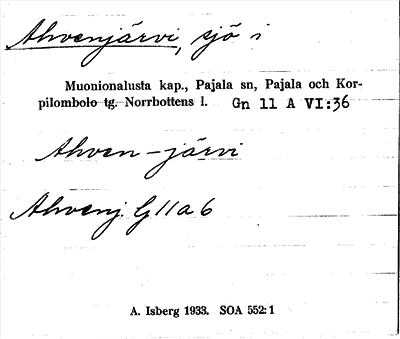 Ahvenjärvi, sjö i
Muonionalusta kap., Pajala sn, Pajala och Kor-
pilombolo tg. Norrbottens l. Gn 11 A VI:36
Ahven-järvi
Ahvenj. G11a6
A. Isberg 1933. SOA 552:1